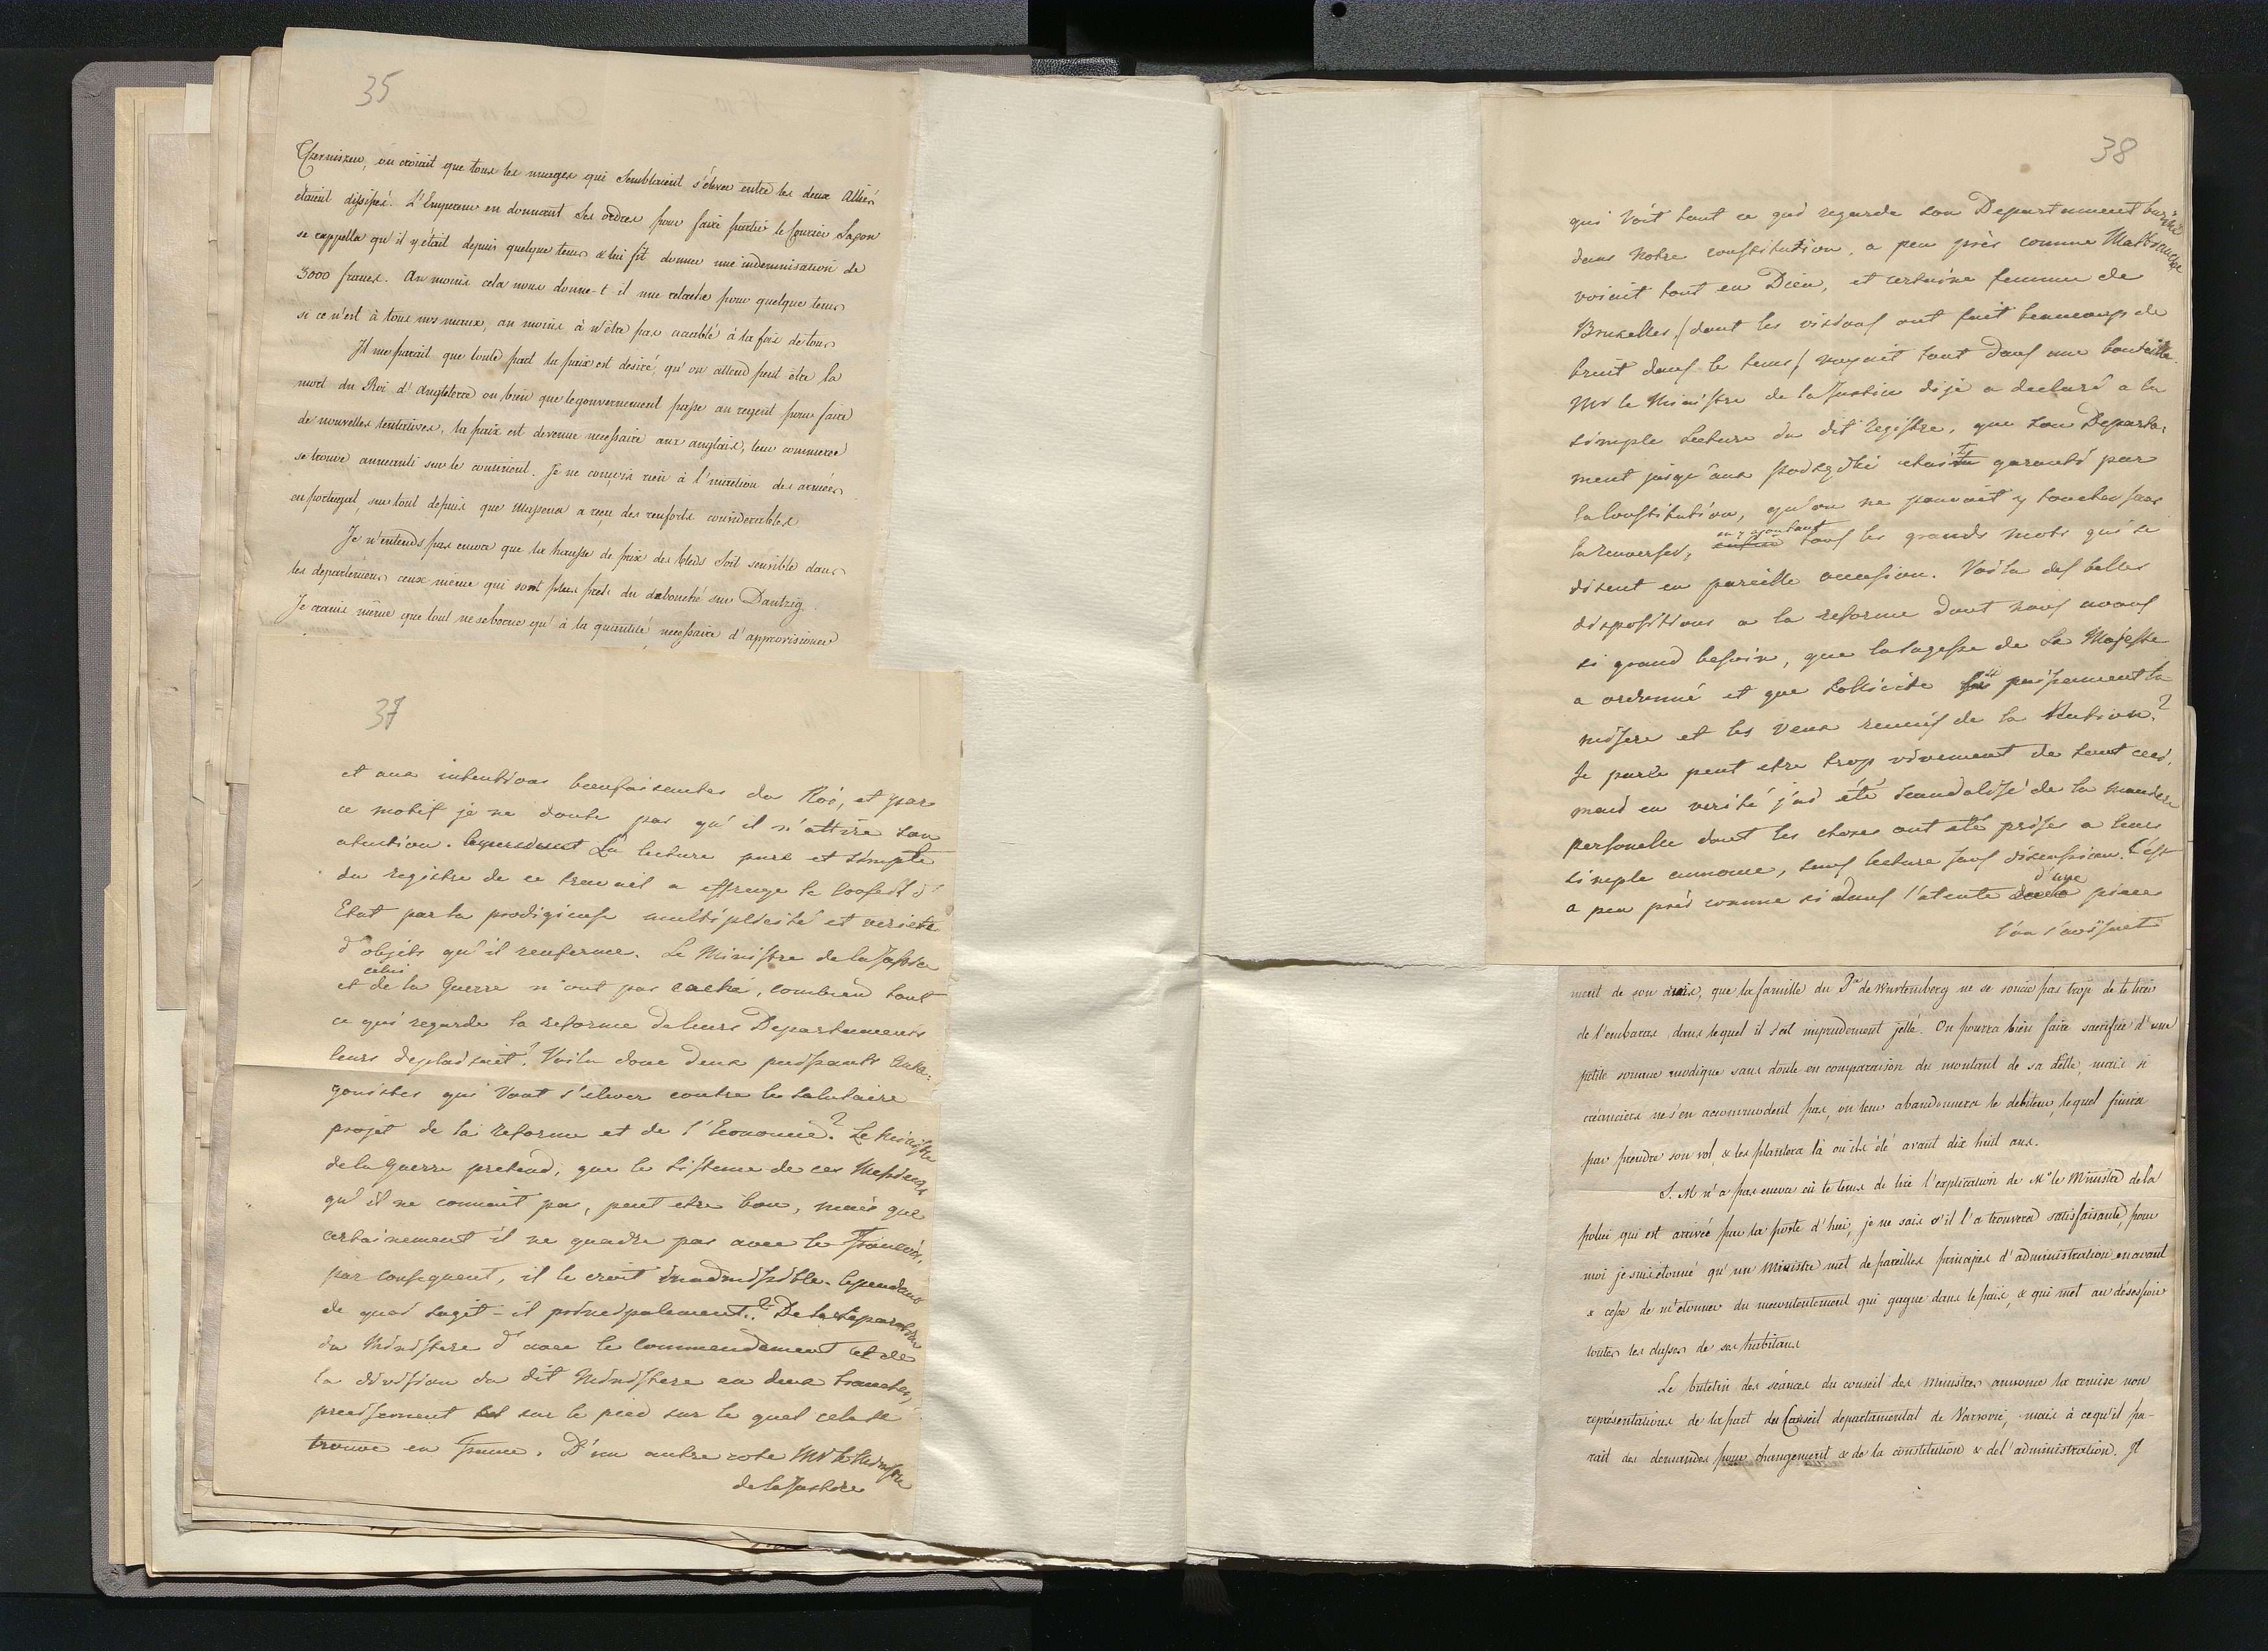 35
Czerniczew, on croiait que tous les nuages qui semblaient s'élever entre les deux Alliés
étaient dissipés. L'Empereur en donnant ses ordres pour faire partir le Courier Saxon
se rappella qu'il y était depuis quelque tems & lui fit donner une indemnisation de
3000 francs. Au moins cela nous donne-t il une relache pour quelque tems
si ce n'est à tous nos maux, au moins à n'être pas accablé à la fois de tous
Il me parait que toute part la paix est desiré, qu'on attend peut être la
mort du Roi d'Angleterre ou bien que le gouvernement passe au regent pour faire
de nouvelles tentatives, la paix est devenue necessaire aux anglais, leur commerce
se trouve anneanti sur le continent. Je ne conçois rien à l'inaction des armées
en portugal, sur tout depuis que Massena a reçu des renforts considerables
Je n'entends pas encore que la hausse de prix des bleds soit sensible dans
les departemens ceux même qui sont plus près du debouché sur Dantzig.
Je crains même que tout ne se borne qu'à la quantité necessaire d'approvisioner
37
et aux intentions bienfaisantes du Roi, et par
ce motif je ne doute pas qu'il n'attire son
atention. Cependant La lecture pure et simple
du registre de ce travail a effraye le Conseil d'
Etat par la prodigieuse multiplicité et varieté
d'objets qu'il renferme. Le Ministre de la Justice
celui
et de la Guerre n'ont pas caché, combien tout
ce qui regarde la reforme de leurs Departements
leurs deplaisait? Voila donc deux puissants Anta-
gonistes qui vont s'elever contre le salutaire
projet de la reforme et de l'Economie? Le Ministre
de la Guerre pretend, que le sisteme de ces Messieurs
qu'il ne connait pas, peut etre bon, mais que
certainement il ne quadre pas avec le Francais,
par consequent, il le croit inadmissible. Cependant
de quoi sagit-il principalement? De la separation
du Ministere d'avec le commendement et de
la division du dit Ministere en deux branches,
precisement sur le pied sur le quel cela se
trouve en France. D'un autre coté Mr le Ministre
de la Justice
38
qui voit tout ce qui regarde son Departement
dans notre constitution, a peu près comme Mallebranche
voiait tout en Dieu, et certaine femme de
Bruxelles, (dont les visions ont fait beaucoup de
bruit dans le tems) voyait tout dans une bouteille.
Mr le Ministre de la Justice dija a declaré a la
simple lecture du dit Registre, que son Departe-
ment jusqu'aux podsędki etait garanti par
la Constitution, qu'on ne pouvait y toucher sans
en y ajoutant
la renverser, enfin tous les grands mots qui se
disent en pareille occasion. Voila des belles
dispositions a la reforme dont nous avons
si grand besoin, que la sagesse de Sa Majesté
a ordonné et que sollicite si puissamment la
misere et les veux reunis de la Nation?
Je parle peut etre trop vivement de tout ceci,
mais en verité j'ai été scandalisé de la maniere
personelle dont les choses ont été prises a leurs
simple annonce, sans lecture sans discussion. C'est
d'une
a peu près comme si dans l'atente de la piece
l'on s'avisait
ment de son avis, que la famille du Pce de Wurtemberg ne se soucie pas trop de le tirer
de l'embaras, dans lequel il s'est imprudement jetté. On pourra bien faire sacrifice d'une
petite somme modique sans doute en comparaison du montant de sa dette, mais si
créanciers ne s'en accommodent pas, on leur abandonnera le debiteur, lequel finira
par prendre son vol, & les plantera là où ils été avant dix huit ans.
S. M n'a pas encore eû le tems de lire l'explication de Mr le Ministre de la
police qui est arrivée par la poste d'hier, je ne sais s'il l'a trouvera satisfaisante, pour
moi je suis etonné qu'un Ministre met de pareilles principes d'administration en avant
& cesse de m'etonner du mecontentement qui gagne dans le païs, & qui met au désespoir
toutes les classes de ses habitans
Le buletin des séances du conseil des Ministres annonce la remise non
représentations de la part du Conseil departamental de Varsovie, mais à ce qu'il pa-
rait des demandes pour changement & de la constitution & de l'administration. Il